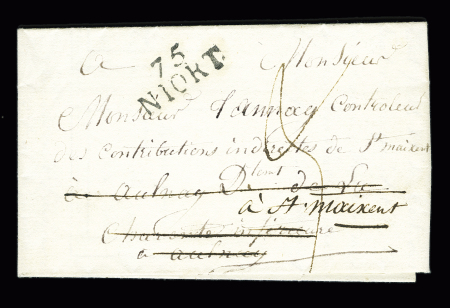 à à Monsieur
75
NIORT.
Monsieur Controleur
des Contributions indirectes de St maixent
à Aulnay D. temt de La
à St. maixent
Charente inférieure
à aulnay